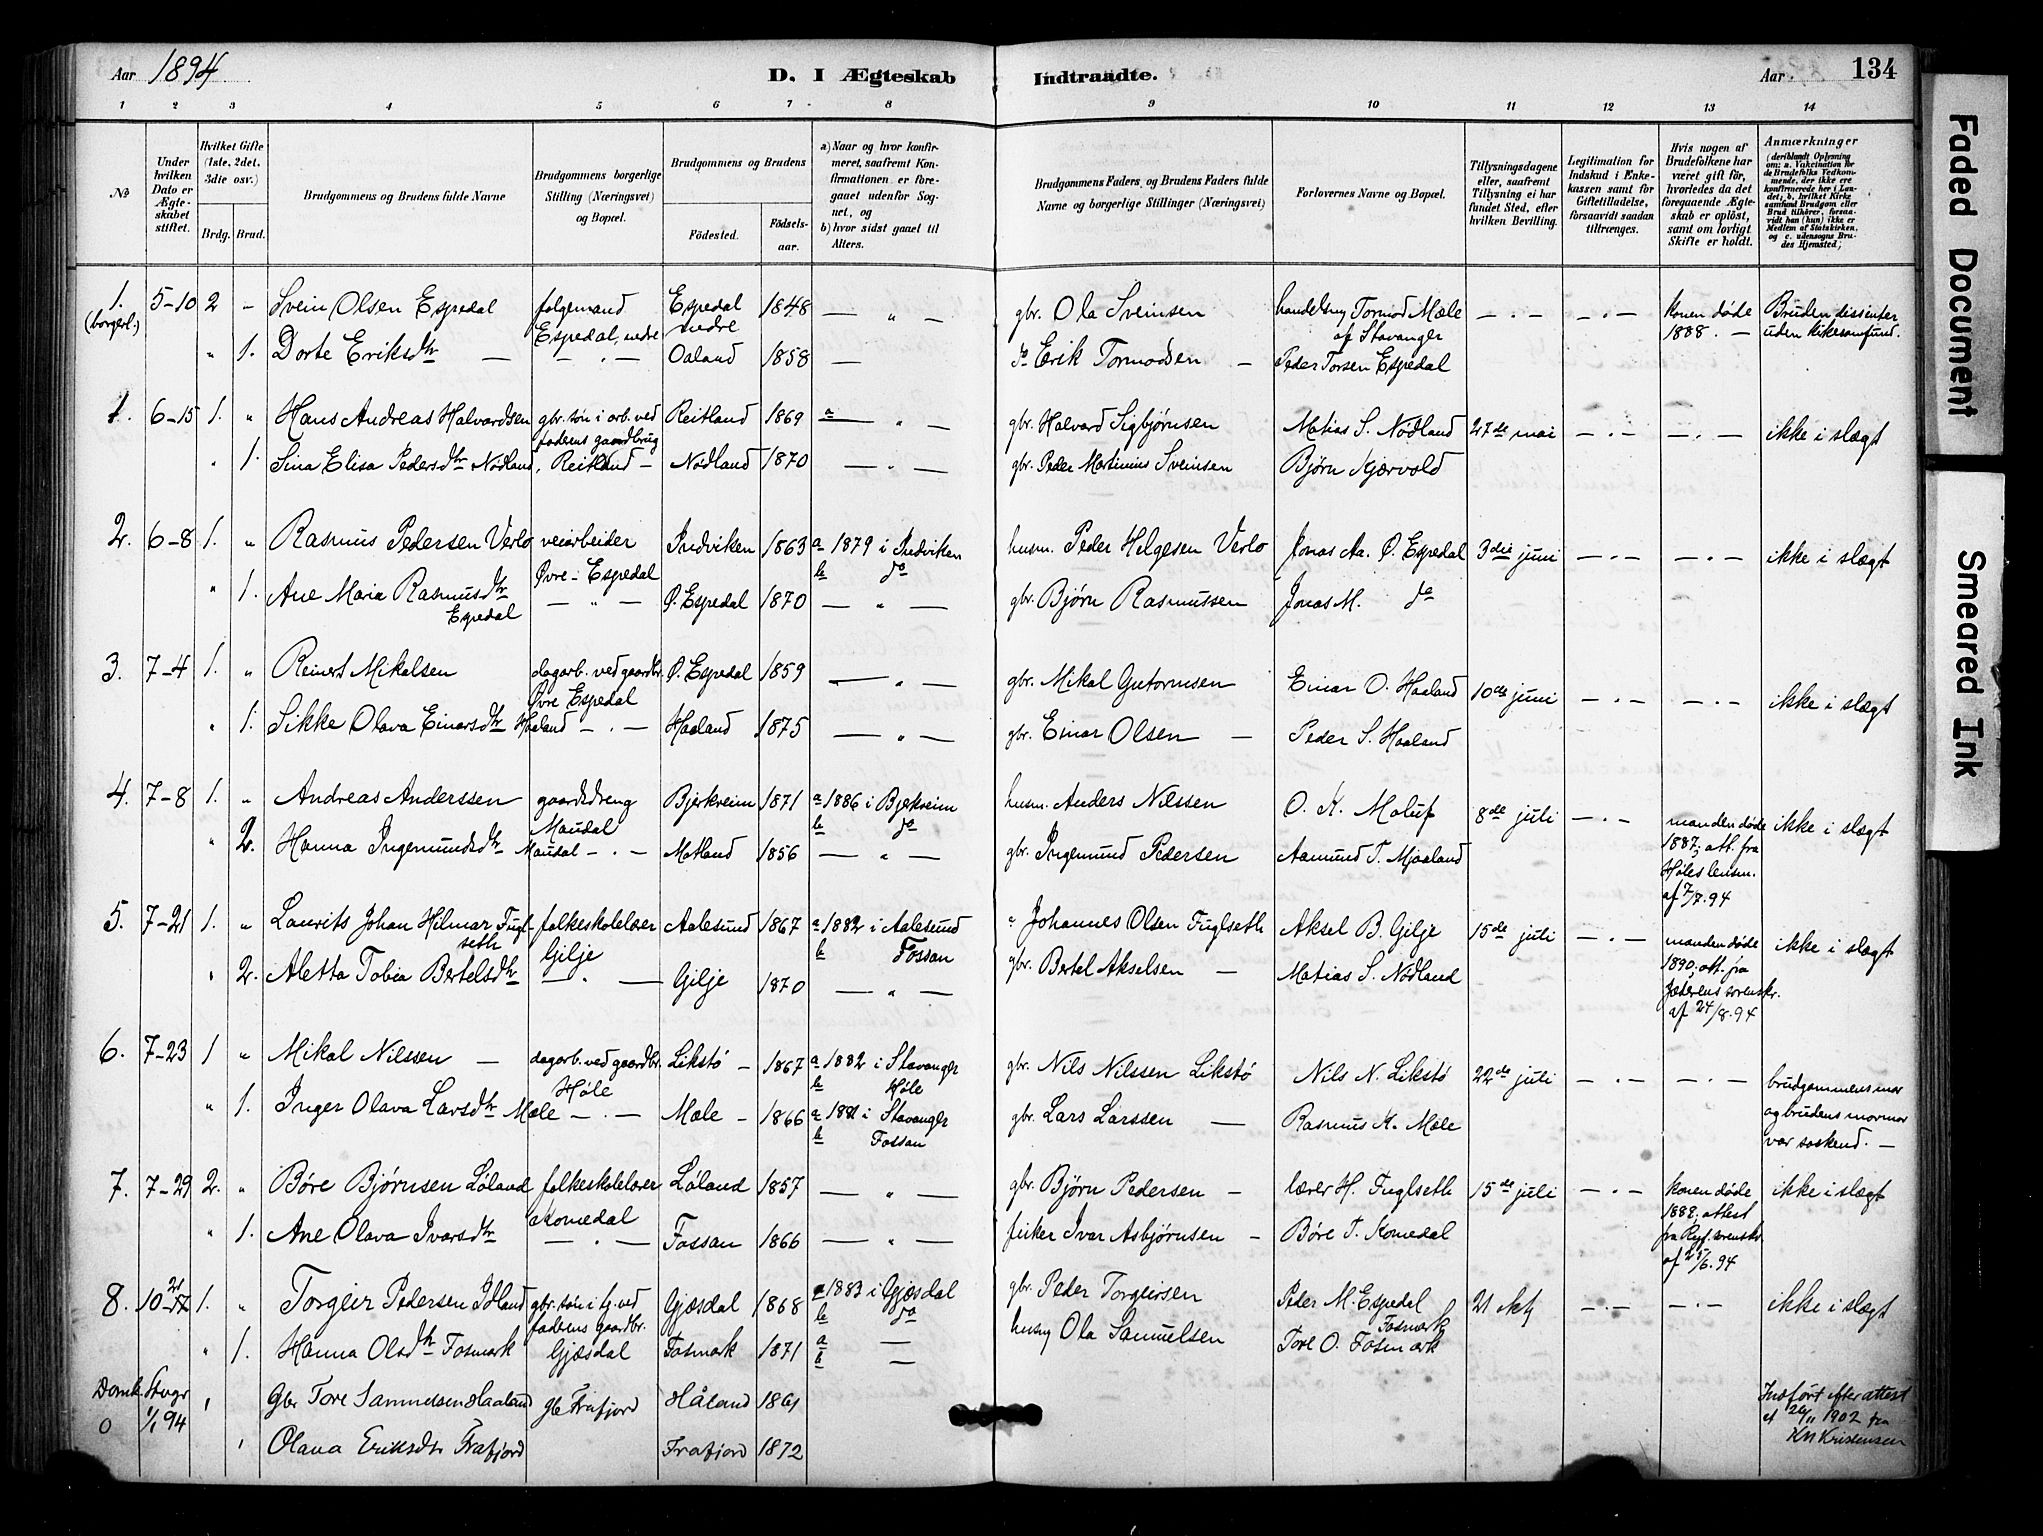 Aar 1894. D. I Ægteskab Indtraadte. Aar 134
1 2 3 4 5 6 7 8 9 10 11 12 13 14
No
Under hvilken Dato er Ægteskabet stiftet.
Hvilket Gifte (1ste, 2det, 3die osv.)
Brdg. Brud.
Brudgommens og Brudens fulde Navne
Brudgommens borgerlige Stilling (Næringsvei) og Bopæl.
Brudgommens og Brudens
Fødested. Fødselsaar.
a) Naar og hvor konfirmeret, saafremt Konfirmationen er foregaaet udenfor Sognet, og
b) hvor sidst gaaet til Alters.
Brudgommens Faders og Brudens Faders fulde Navne og borgerlige Stillinger (Næringsvei)
Forlovernes Navne og Bopæl.
Tillysningsdagene eller, saafremt Tillysning ei har fundet Sted, efter hvilken Bevilling.
Legitimation for Indskud i Enkekassen samt for Giftetilladelse, forsaavidt saadan tiltrænges.
Hvis nogen af Brudefolkene har været gift før, hvorledes da det foregaaende Ægteskab er opløst, samt om lovligt Skifte er holdt.
Anmærkninger
(deriblandt Oplysning om: a. Vakcination for de Brudefolks Vedkommende, der ikke ere konfirmerede her i Landet; b. hvilket Kirkesamfund Brudgom eller Brud tilhører, forsaavidt han (hun) ikke er Medlem af Statskirken, og c. udensogns Brudes Hjemsted;
1. 5-10 2 - Svein Olsen Espedal folgemand Espedal 1848 — " — gbr. Ola Sveinsen handelsmg Tormod Mæle — . — — . — konen døde Bruden dissenter
(borgerl.) Espedal, nedre nedre af Stavanger 1888. — uden kikesamfund.
" 1. Dorte Eriksdtr — — . — Oaland 1858 — do Erik Tormodsen — Peder Torsen Espedal
1. 6-15 1. " Hans Andreas Halvardsen gbr. søn i arb. ved Reitland 1869 a — " — gbr. Halvard Sigbjørnsen Matias S. Nødland 27de mai — . — — . — ikke i slægt
faderens gaardbrug
" 1. Sina Elisa Pedersdtr Nødland, Reitland — Nødland 1870 — " — gbr. Peder Martinius Sveinsen Bjørn Kjærvold
2. 6-8 1. " Rasmus Pedersen Verlo veiarbeider Indviken 1863 a 1879 i Indviken husm. Peder Helgesen Verlo Jonas Aa. Ø. Espedal 3die juni — . — — . — ikke i slægt
Øvre - Espedal b do
" 1. Ane Maria Rasmusdtr — " — Ø. Espedal 1870 — " — gbr. Bjørn Rasmussen Jonas M. do
Espedal
3. 7-4 1. " Reinert Mikalsen dagarb. ved gaardbr. Ø. Espedal 1859 — " — gbr. Mikal Gutormsen Einar O. Haaland 10de juni — . — — . — ikke i slægt
Øvre Espedal
" 1. Sikke Olava Einarsdtr Haaland — . — Haaland 1875 — " — gbr. Einar Olsen — Peder S. Haaland
4. 7-8 1. " Andreas Anderssen gaardsdreng Bjerkreim 1871 a 1886 i Bjerkreim husm. Anders Nilssen O. K. Maluf 8de juli — . — manden døde ikke i slægt
Maudal b do 1887; att. fra
" 2. Hanna Ingemundsdtr Maudal — . — Matland 1856 — " — gbr. Ingemund Pedersen Aamund T. Mjaaland Høles lensm.
af 7/7.94
5. 7-21 1. " Laurits Johan Hilmar Fugl- folkeskolelærer Aalesund 1867 a 1882 i Aalesund " Johannes Olsen Fuglseth Aksel B. Gilje 15de juli — . — manden døde ikke i slægt
seth Gilje b Fossan 1890; att. fra
" 2. Aletta Tobia Bertelsdtr — . — Gilje 1870 — " — gbr. Bertel Akselsen — Matias S. Nødland Jæderens sorenskr.
af 24/8.94
6. 7-23 1 " Mikal Nilssen — dagarb. ved gaardbr. Likstø — 1867 a 1882 i Stavanger gbr. Nils Nilssen Likstø Nils N. Likstø 22de juli — . — — . — brudgommens mor
Høle b Høle og brudens mormor
" 1. Inger Olava Larsdtr Mæle — . — Mæle — 1866 a 1881 i Stavanger gbr. Lars Larssen — Rasmus K. Mæle var søskend. —
b Fossan
7. 7-29 2. " Børe Bjørnsen Løland folkeskolelærer Løland 1857 — " — gbr. Bjørn Pedersen — lærer H. Fuglseth 15de juli — . — konen døde ikke i slægt
Komedal 1888; attest
" 1. Ane Olava Ivarsdtr — " — Fossan 1866 — " — fisker Ivar Asbjørnsen — Børe T. Komedal fra Ryf. sorenskr.
af 25/6.94
8. 10-21 1. " Torgier Pedersen Idland gbr. søn i Gj. ved Gjæsdal 1868 a 1883 i Gjæsdal gbr. Peder Torgiersen Peder M. Espedal 21 okt — . — — . — ikke i slægt
faderens gaardbr. b do Fosmark
" 1. Hanna Olsdtr Fosmark Gjæsdal Fosmark 1871 a — husmg Ola Samuelsen Tore O. Fosmark
b —
Domk. Stvgr " Gbr Tore Samuelsen Haaland gb Frafjord Håland 1861 Indført efter attest
0 1/1 94 af 26/11 1902 fra
" Olava Eriksdtr Frafjord Frafjord 1872 KM Kristensen
Faded Document
Smeared Ink